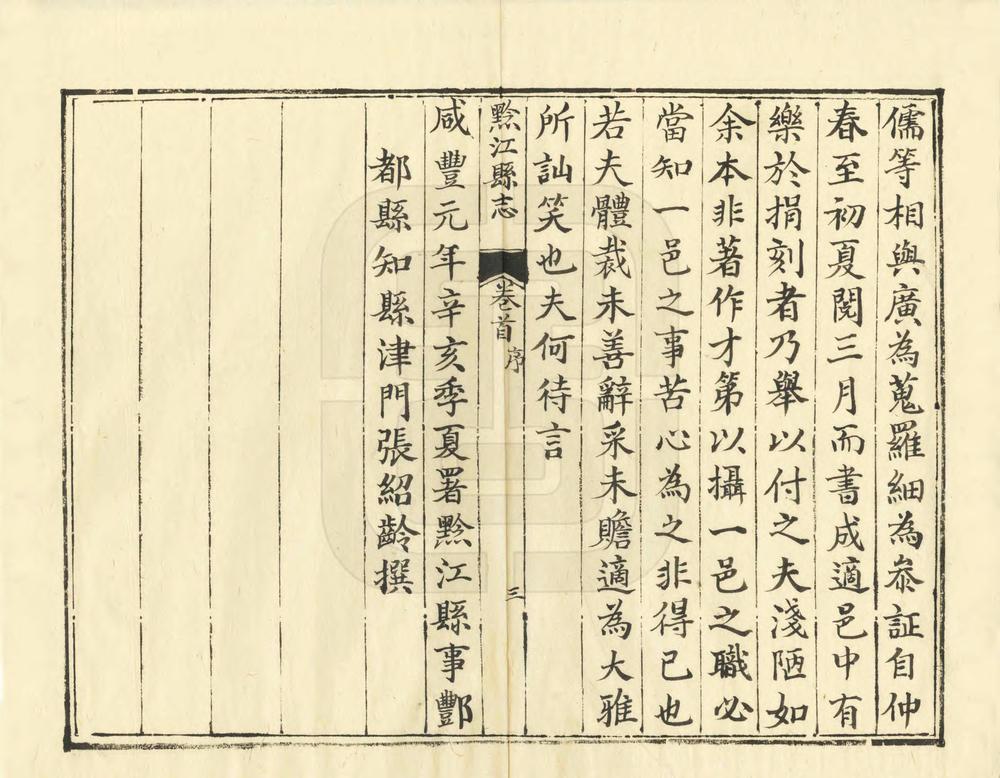 儒等相與廣為蒐羅細為叅証自仲
春至初夏閱三月而書成適邑中有
樂於捐刻者乃舉以付之夫淺陋如
余本非著作才第以攝一邑之職必
當知一邑之事苦心為之非得已也
若夫體裁未善辭采未贍適為大雅
所訕笑也夫何待言
黔江縣志
卷首
序
三
咸豐元年辛亥季夏署黔江縣事酆
都縣知縣津門張紹齡撰